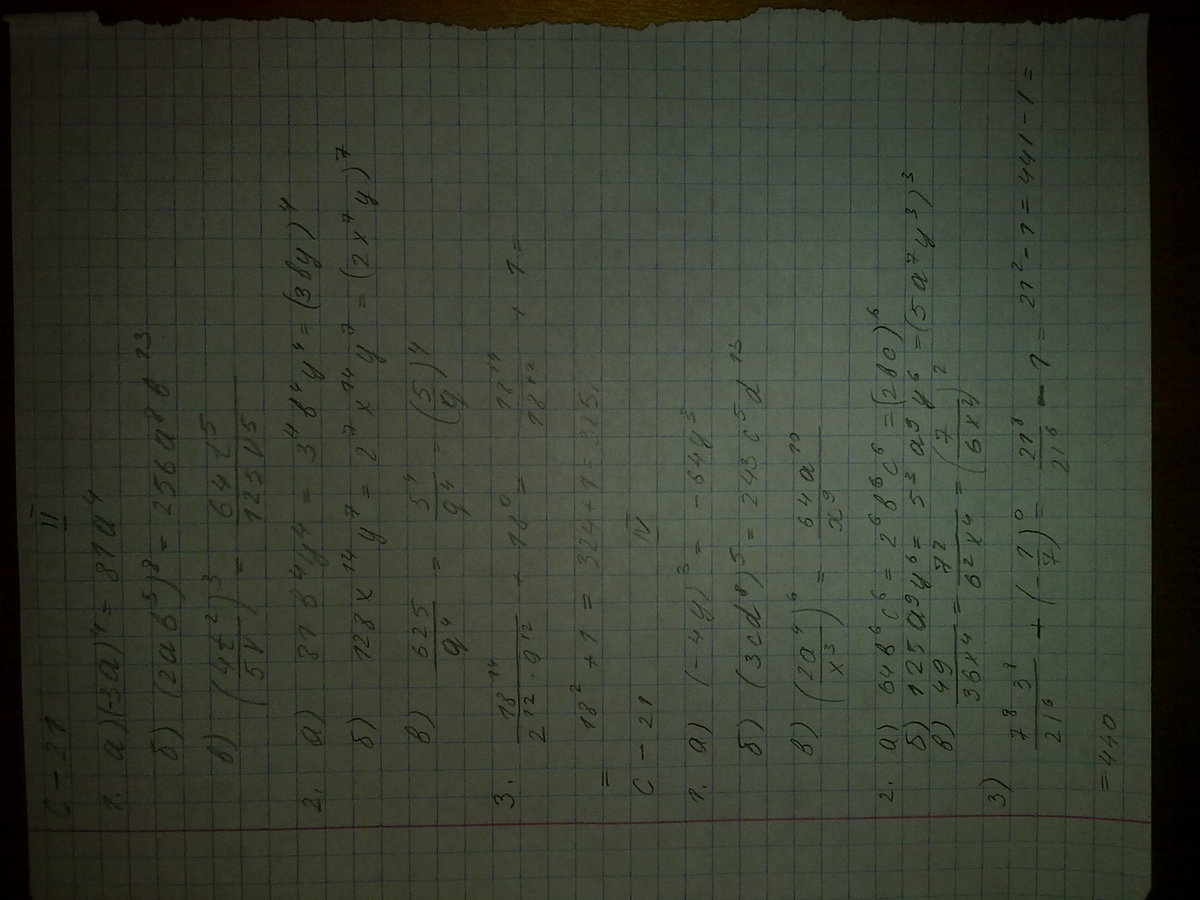 С – 21 II
1. а) (-3a)⁴ = 81a⁴
б) (2ab³)⁸ = 256a⁸b²³
в) (4t²/5v)³ = 64t⁵/125v⁵
2. а) 81b⁴y⁴ = 3⁴b⁴y⁴ = (3by)⁴
б) 128x¹⁴y⁷ = 2⁷x¹⁴y⁷ = (2x⁷y)⁷
в) 625/q⁴ = 5⁴/q⁴ = (5/q)⁴
3. 18¹⁴/2¹²·9¹² + 18⁰ = 18¹⁴/18¹² + 1 =
= 18² + 1 = 324 + 1 = 325.
С – 21 IV
1. а) (-4y)³ = -64y³
б) (3cd⁸)⁵ = 243c⁵d¹³
в) (2a⁴/x³)⁶ = 64a¹⁰/x⁹
2. а) 64b⁶c⁶ = 2⁶b⁶c⁶ = (2b0)⁶
б) 125a⁹y⁶ = 5³a⁹y⁶ = (5a⁷y³)³
в) 49/36x⁴ = 7²/6²x⁴ = (7/6x4)²
3) 7⁸ 3⁸/21⁶ + (-?/7)⁰ = 21⁸/21⁶ – 1 = 21² – 1 = 441 – 1 =
= 440